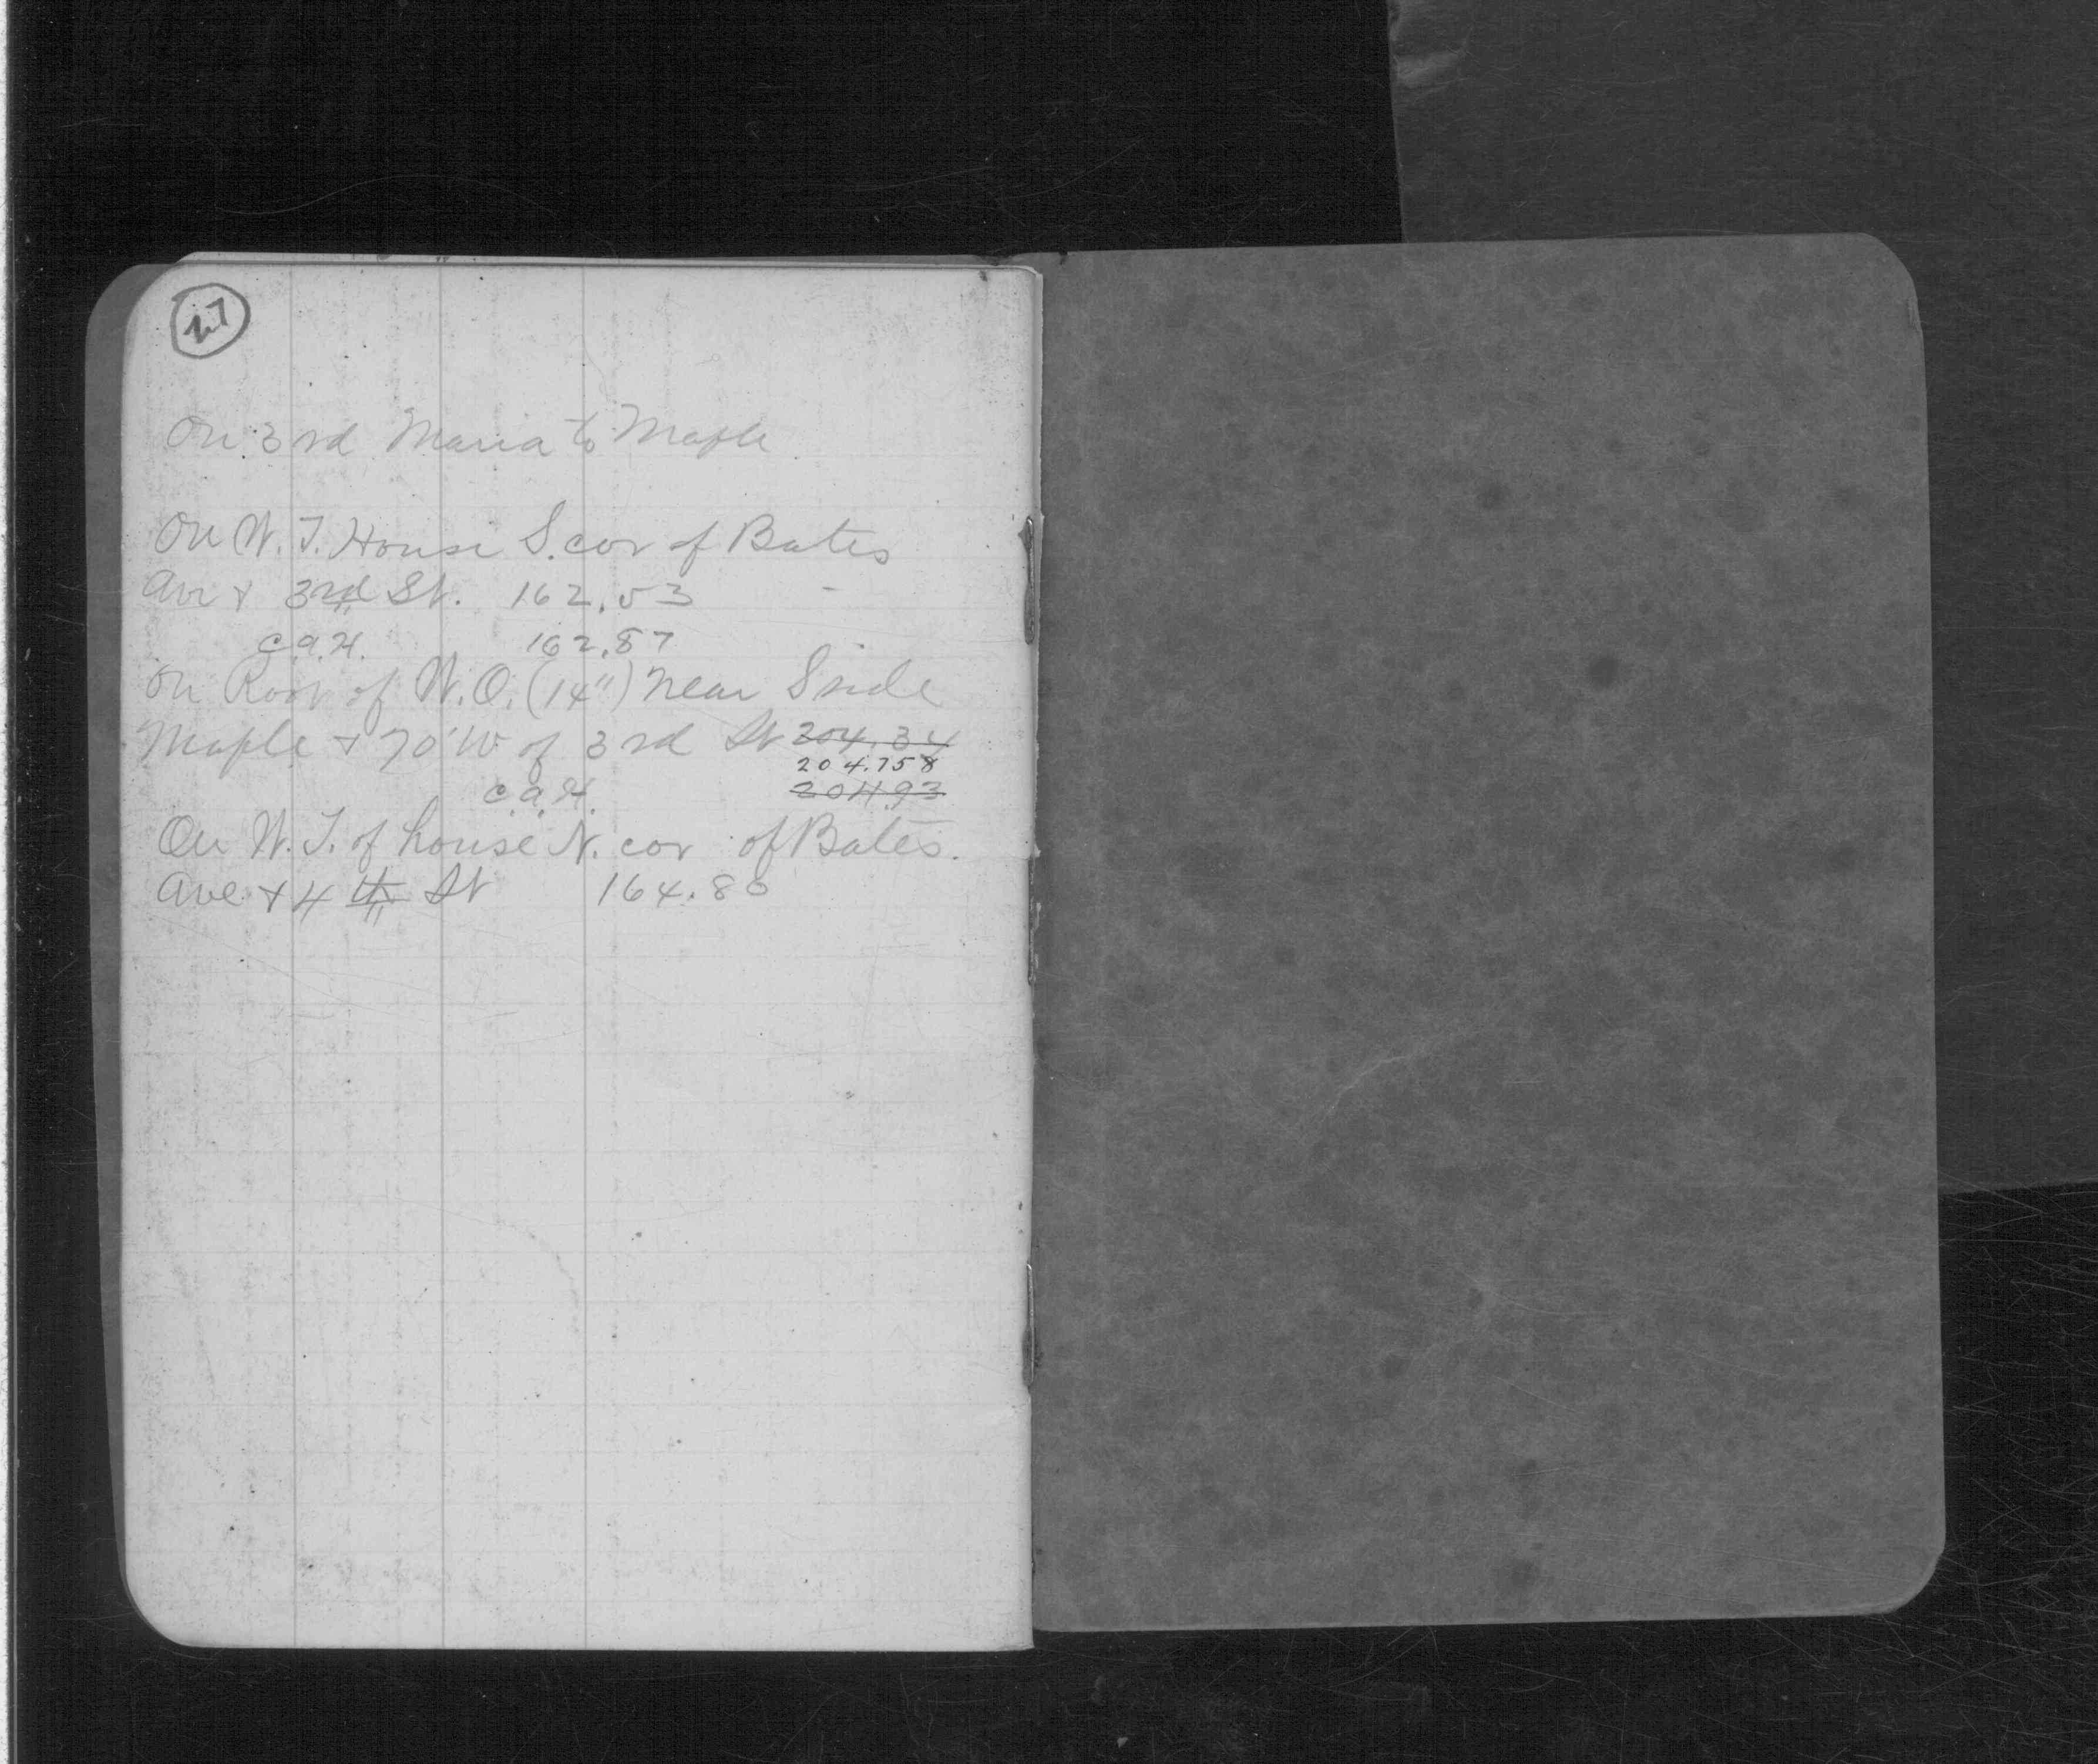 27
On 3rd Maria to Maple
On W.T. House S. cor of Bates
Ave & 3rd St. 162.53
C.A.H. 162.87
On Root of W.O. (14") near S side
Maple & 70' W of 3rd St 204.34
204.758
C.A.H. 204.93
On W.T. of house N. cor of Bates.
Ave & 4th St 164.80